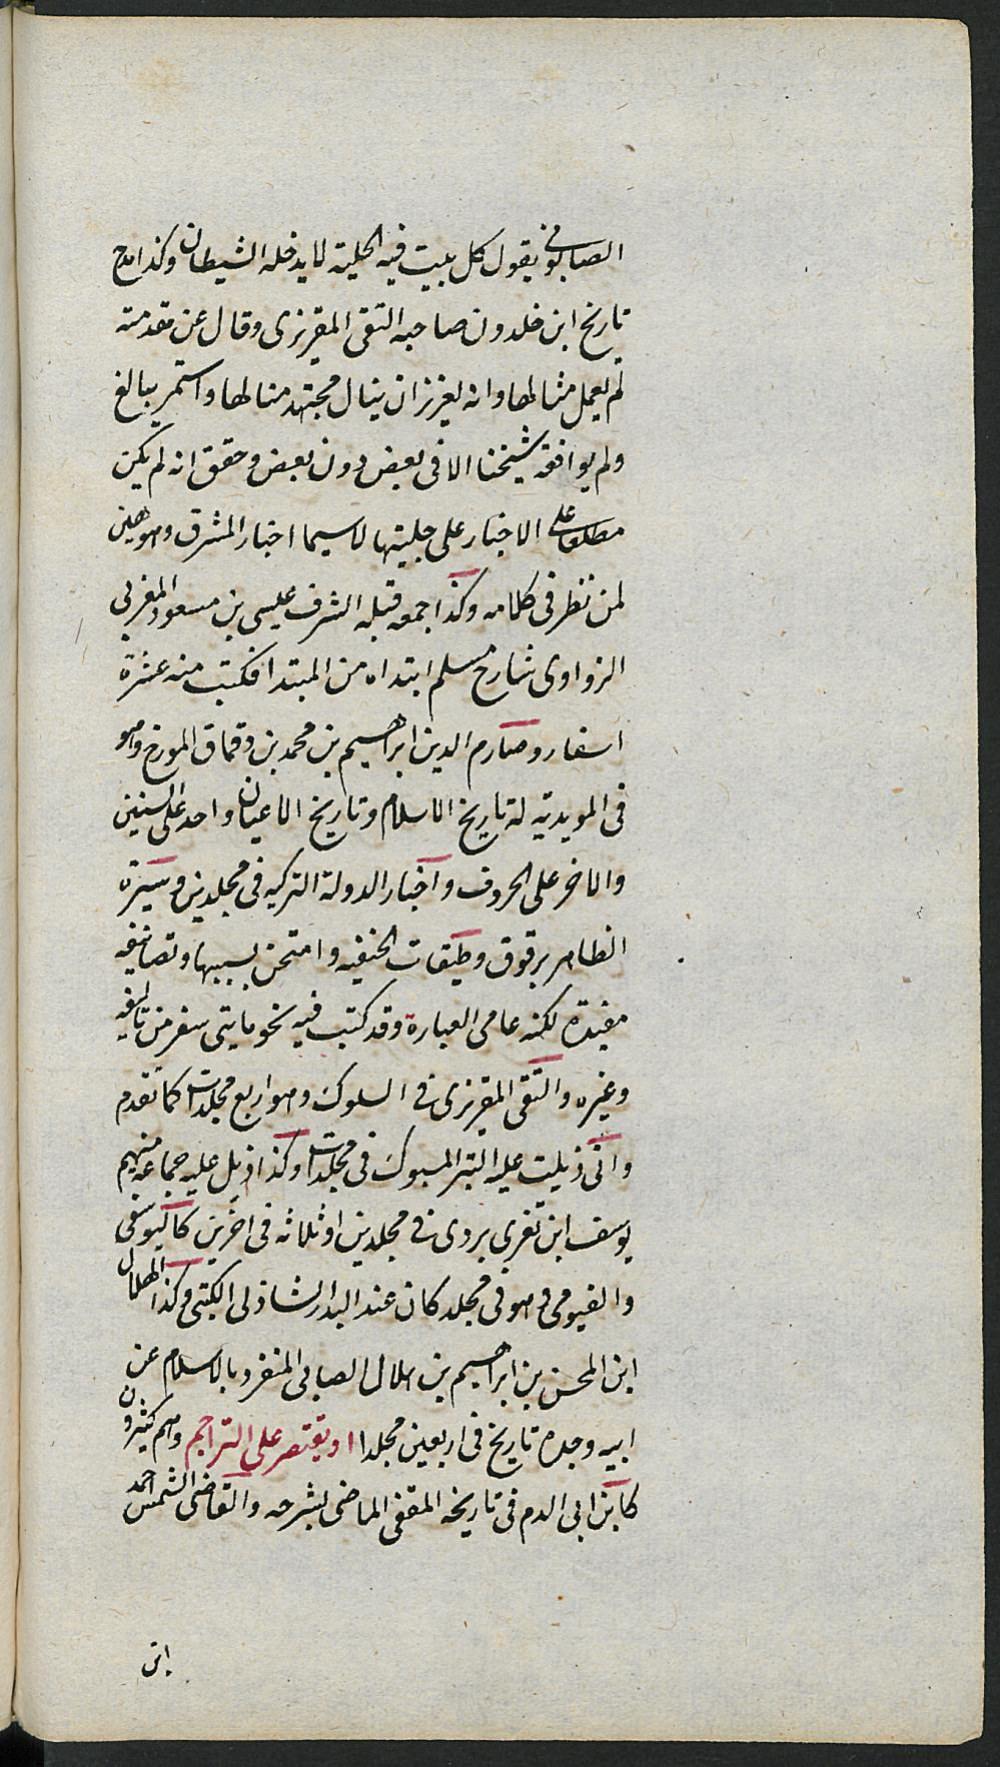 الصابونى يقول كل بيت فيه الحلية لا يدخله الشيطان وكذا مدح
تاريخ ابن خلدون صاحبه التقى المقريزى وقال عن مقدمته
لم يعمل مثالها وانه لعزيز ان ينال مجتهد منالها واستمر يبالغ
ولم يوافقه شيخنا الا فى بعض دون بعض وحقق انه لم يكن
مطلعا على الاخبار على جليتها لاسيما اخبار المشرق وهو بين
لمن نظر فى كلامه وكذا جمعه قبله الشرف عيسى بن مسعود المغربى
الزواوى شارح مسلم ابتداه من المبتدا فكتب منه عشرة
اسفار وصارم الدين ابراهيم بن محمد بن دقماق المورخ وهو
فى المويديه له تاريخ الاسلام وتاريخ الاعيان واحد على السنين
والاخر على الحروف واخبار الدولة التركيه فى مجلدين وسيرة
الظاهر برقوق وطبقات الحنفيه وامتحن بسببها وتصانيفه
مفيدة لكنه عامى العبارة وقد كتب فيه نحو مايتى سفر من تاليفه
وغيره والتقى المقريزى فى السلوك وهو اربع مجلدات كما تقدم
وانى ذيلت عليه التبر المسبوك فى مجلدات وكذا ذيل عليه جماعه منهم
يوسف ابن تغرى بردى فى مجلدين او ثلاثه فى اخرين كاليوسفى
والفيومى وهو فى مجلد كان عند البدر الشاذلى الكتبى وكذا لهلال
ابن المحسن بن ابراهيم بن هلال الصابى المنفرد بالاسلام عن
ابيه وجده تاريخ فى اربعين مجلدا او يقتصر على التراجم وهم كثيرون
كابن ابى الدم فى تاريخه المقفى الماضى بشرحه والقاضى الشمس احمد
ابن